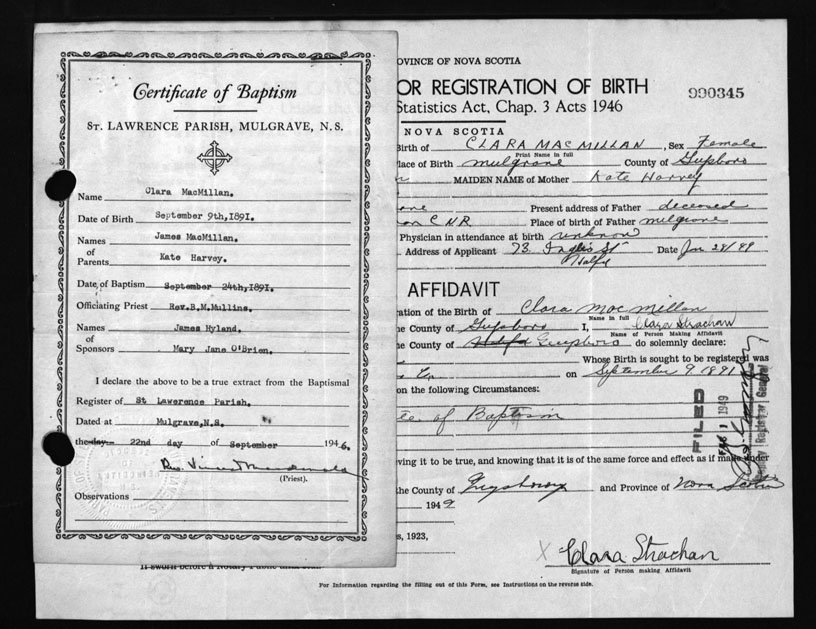 Certificate of Baptism
ST. LAWRENCE PARISH, MULGRAVE, N. S.
Name Clara MacMillan.
Date of Birth September 9th,1891.
Names James MacMillan.
of
Parents Kate Harvey.
Date of Baptism September 24th,1891.
Officiating Priest Rev.B.M.Mullins.
Names James Hyland.
of
Sponsors Mary Jane O'Brien.
I declare the above to be a true extract from the Baptismal
Register of St Lawerence Parish.
Dated at Mulgrave,N.S.
the day 22nd day of September 1946.
Rev. Vincent Macdonald
(Priest).
Observations
OVINCE OF NOVA SCOTIA
OR REGISTRATION OF BIRTH
990345
Statistics Act, Chap. 3 Acts 1946
NOVA SCOTIA
Birth of CLARA MACMILLAN, Sex Female
Print Name in full
Place of Birth Mulgrave County of Guysboro
MAIDEN NAME of Mother Kate Harvey
Present address of Father deceased
CNR Place of birth of Father Mulgrave
Physician in attendance at birth unknown
Address of Applicant 73 Inglis St Date Jan 28/49
Halfx
AFFIDAVIT
ration of the Birth of Clara MacMillan
Name in full
he County of Guysboro I, Clara Strachan
Name of Person Making Affidavit
the County of Halifax Guysboro do solemnly declare:
Whose Birth is sought to be registered was
on September 9 1891
on the following Circumstances:
te of Baptism
FILED
FEB 1 1949
Deputy Registrar General
ving it to be true, and knowing that it is of the same force and effect as if made under
the County of and Province of Nova Scotia
1949
s, 1923,
X Clara Strachan
Signature of Person making Affidavit
If sworn before a Notary Public
For Information regarding the filling out of this Form, see Instructions on the reverse side.